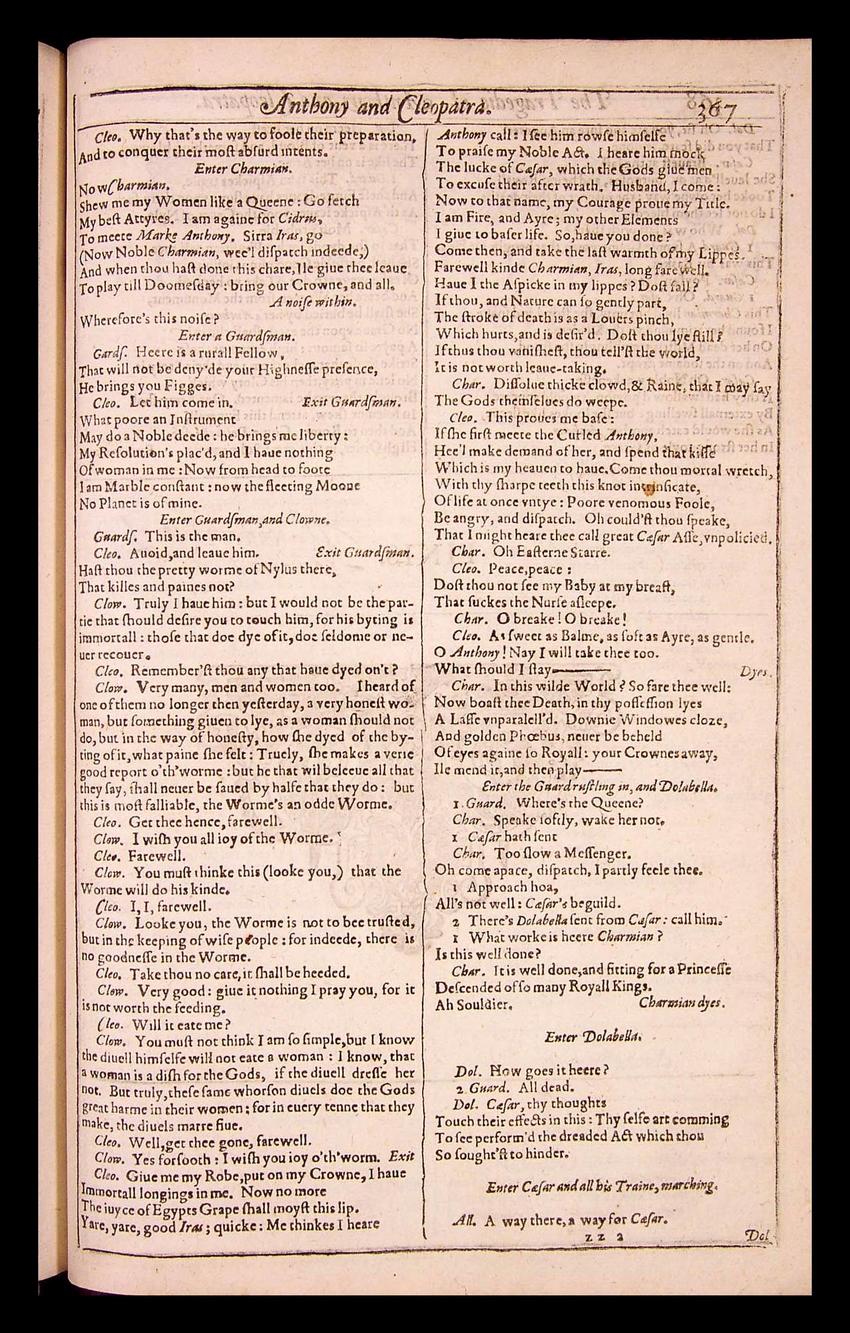 Anthony and Cleopatra. 367
Cleo. Why that's the way to foole their preparation,
And to conquer their most absurd intents.
Enter Charmian.
Now Charmian.
Shew me my Women like a Queene: Go fetch
My best Attyres. I am againe for Cidrus,
To meete Marke Anthony. Sirra Iras, go
(Now Noble Charmian, wee'l dispatch indeede,)
And when thou hast done this chare, Ile giue thee leaue
To play till Doomesday: bring our Crowne, and all.
A noise within.
Wherefore's this noise?
Enter a Guardsman.
Gards. Heere is a rurall Fellow,
That will not be deny'de your Highnesse presence,
He brings you Figges.
Cleo. Let him come in. Exit Guardsman.
What poore an Instrument
May do a Noble deede: he brings me liberty:
My Resolution's plac'd, and I haue nothing
Of woman in me: Now from head to foote
I am Marble constant: now the fleeting Moone
No Planet is of mine.
Enter Guardsman, and Clowne.
Guards. This is the man.
Cleo. Auoid, and leaue him. Exit Guardsman.
Hast thou the pretty worme of Nylus there,
That killes and paines not?
Clow. Truly I haue him: but I would not be the par-
tie that should desire you to touch him, for his byting is
immortall: those that doe dye of it, doe seldome or ne-
uer recouer.
Cleo. Remember'st thou any that haue dyed on't?
Clow. Very many, men and women too. I heard of
one of them no longer then yesterday, a very honest wo-
man, but something giuen to lye, as a woman should not
do, but in the way of honesty, how she dyed of the by-
ting of it, what paine she felt: Truely, she makes a verie
good report o'th'worme: but he that wil beleeue all that
they say, shall neuer be saued by halfe that they do: but
this is most falliable, the Worme's an odde Worme.
Cleo. Get thee hence, farewell.
Clow. I wish you all ioy of the Worme.
Cleo. Farewell.
Clow. You must thinke this (looke you,) that the
Worme will do his kinde.
Cleo. I, I, farewell.
Clow. Looke you, the Worme is not to bee trusted,
but in the keeping of wise people: for indeede, there is
no goodnesse in the Worme.
Cleo. Take thou no care, it shall be heeded.
Clow. Very good: giue it nothing I pray you, for it
is not worth the feeding.
Cleo. Will it eate me?
Clow. You must not think I am so simple, but I know
the diuell himselfe will not eate a woman: I know, that
a woman is a dish for the Gods, if the diuell dresse her
not. But truly, these same whorson diuels doe the Gods
great harme in their women: for in euery tenne that they
make, the diuels marre fiue.
Cleo. Well, get thee gone, farewell.
Clow. Yes forsooth: I wish you ioy o'th'worm. Exit
Cleo. Giue me my Robe, put on my Crowne, I haue
Immortall longings in me. Now no more
The iuyce of Egypts Grape shall moyst this lip.
Yare, yare, good Iras; quicke: Me thinkes I heare
Anthony call: I see him rowse himselfe
To praise my Noble Act. I heare him mock
The lucke of Cæsar, which the Gods giue men
To excuse their after wrath. Husband, I come:
Now to that name, my Courage proue my Title.
I am Fire, and Ayre; my other Elements
I giue to baser life. So, haue you done?
Come then, and take the last warmth of my Lippes.
Farewell kinde Charmian, Iras, long farewell.
Haue I the Aspicke in my lippes? Dost fall?
If thou, and Nature can so gently part,
The stroke of death is as a Louers pinch,
Which hurts, and is desir'd. Dost thou lye still?
If thus thou vanishest, thou tell'st the world,
It is not worth leaue-taking.
Char. Dissolue thicke clowd, & Raine, that I may say
The Gods themselues do weepe.
Cleo. This proues me base:
If she first meete the Curled Anthony,
Hee'l make demand of her, and spend that kisse
Which is my heauen to haue. Come thou mortal wretch,
With thy sharpe teeth this knot intrinsicate,
Of life at once vntye: Poore venomous Foole,
Be angry, and dispatch. Oh could'st thou speake,
That I might heare thee call great Cæsar Asse, vnpolicied.
Char. Oh Easterne Starre.
Cleo. Peace, peace:
Dost thou not see my Baby at my breast,
That suckes the Nurse asleepe.
Char. O breake! O breake!
Cleo. As sweet as Balme, as soft as Ayre, as gentle.
O Anthony! Nay I will take thee too.
What should I stay—— Dyes.
Char. In this wilde World? So fare thee well:
Now boast thee Death, in thy possession lyes
A Lasse vnparalell'd. Downie Windowes cloze,
And golden Phœbus, neuer be beheld
Of eyes againe so Royall: your Crownes away,
Ile mend it, and then play——
Enter the Guard rustling in, and Dolabella.
1. Guard. Where's the Queene?
Char. Speake softly, wake her not.
1 Cæsar hath sent
Char. Too slow a Messenger.
Oh come apace, dispatch, I partly feele thee.
1 Approach hoa,
All's not well: Cæsar's beguild.
2 There's Dolabella sent from Cæsar: call him.
1 What worke is heere Charmian?
Is this well done?
Char. It is well done, and fitting for a Princesse
Descended of so many Royall Kings.
Ah Souldier. Charmian dyes.
Enter Dolabella.
Dol. How goes it heere?
2 Guard. All dead.
Dol. Cæsar, thy thoughts
Touch their effects in this: Thy selfe art comming
To see perform'd the dreaded Act which thou
So sought'st to hinder.
Enter Cæsar and all his Traine, marching.
All. A way there, a way for Cæsar.
zz 2 Dol.